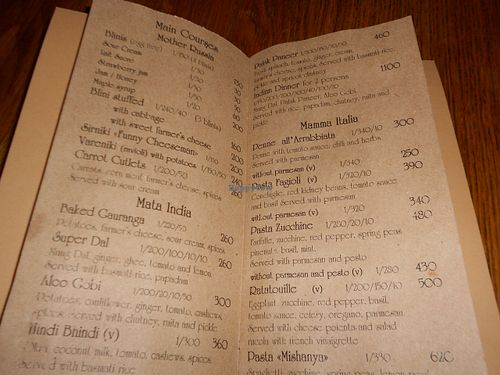 Main Courses
Mother Russia
Blinis (egg free) 1/150 (3 blinis)
Sour Cream 1/30
Last Secre 1/30
Strawberry jam 1/30
Jam / Honey 1/30
Maple syrup 1/20
Blini stuffed 1/240/40 (3 blinis) 200
with cabbage
with sweet farmer's cheese 160
Sirniki «Funny Cheeseman» 1/150 200
Vareniki (ravioli) with potatoes 1/150/50 240
Carrot Cutlets 1/200/50 260
Carrots, corn meal, farmer's cheese, spices
Served with sour cream
Mata India
Baked Gauranga 1/220/75 260
Potatoes, farmer's cheese, sour cream, spices
Super Dal 1/200/100/10/10 260
Mung Dal, ginger, ghee, tomato and lemon
Served with basmati rice, papadam
Aloo Gobi 1/200/20/10/50 300
Potatoes, cauliflower, ginger, tomato, cashews,
spices, served with chutney, raita and pickle
Hindi Bhindi (v) 1/300 360
Okra, coconut milk, tomato, cashews, spices
Served with basmati rice
Palak Paneer 1/200/80/10/50 460
Fresh spinach, tomato, ginger, cream,
farmer's cheese, spices. Served with basmati rice,
pickle and apricot chutney
Indian Dinner for 2 persons 1100
Mung Dal, Palak Paneer, Aloo Gobi
served with rice, papadam, chutney, raita and
pickle
Mamma Italia
Penne all'Arrabbiata 1/340/10 300
Penne with tomato sauce, chilli and herbs
Served with parmesan
without parmesan (v) 1/340 250
Pasta Fagioli (v) 1/320/10 390
Conchiglie, red kidney beans, tomato sauce
and basil Served with parmesan
without parmesan (v) 1/320 340
Pasta Zucchine 1/250/20/10 480
Farfalle, zucchini, red pepper, spring peas
peanuts, basil, mint.
Served with parmesan and pesto
without parmesan and pesto (v) 1/280 430
Ratatouille (v) 1/200/150/10 500
Eggplant, zucchine, red pepper, basil,
tomato sauce, celery, oregano, parmesan
Served with cheese polenta and salad
nicols with french vinaigrette
Pasta «Mishanya» 1/330 620
Spaghetti, zucchine, spring peas, lemon peel